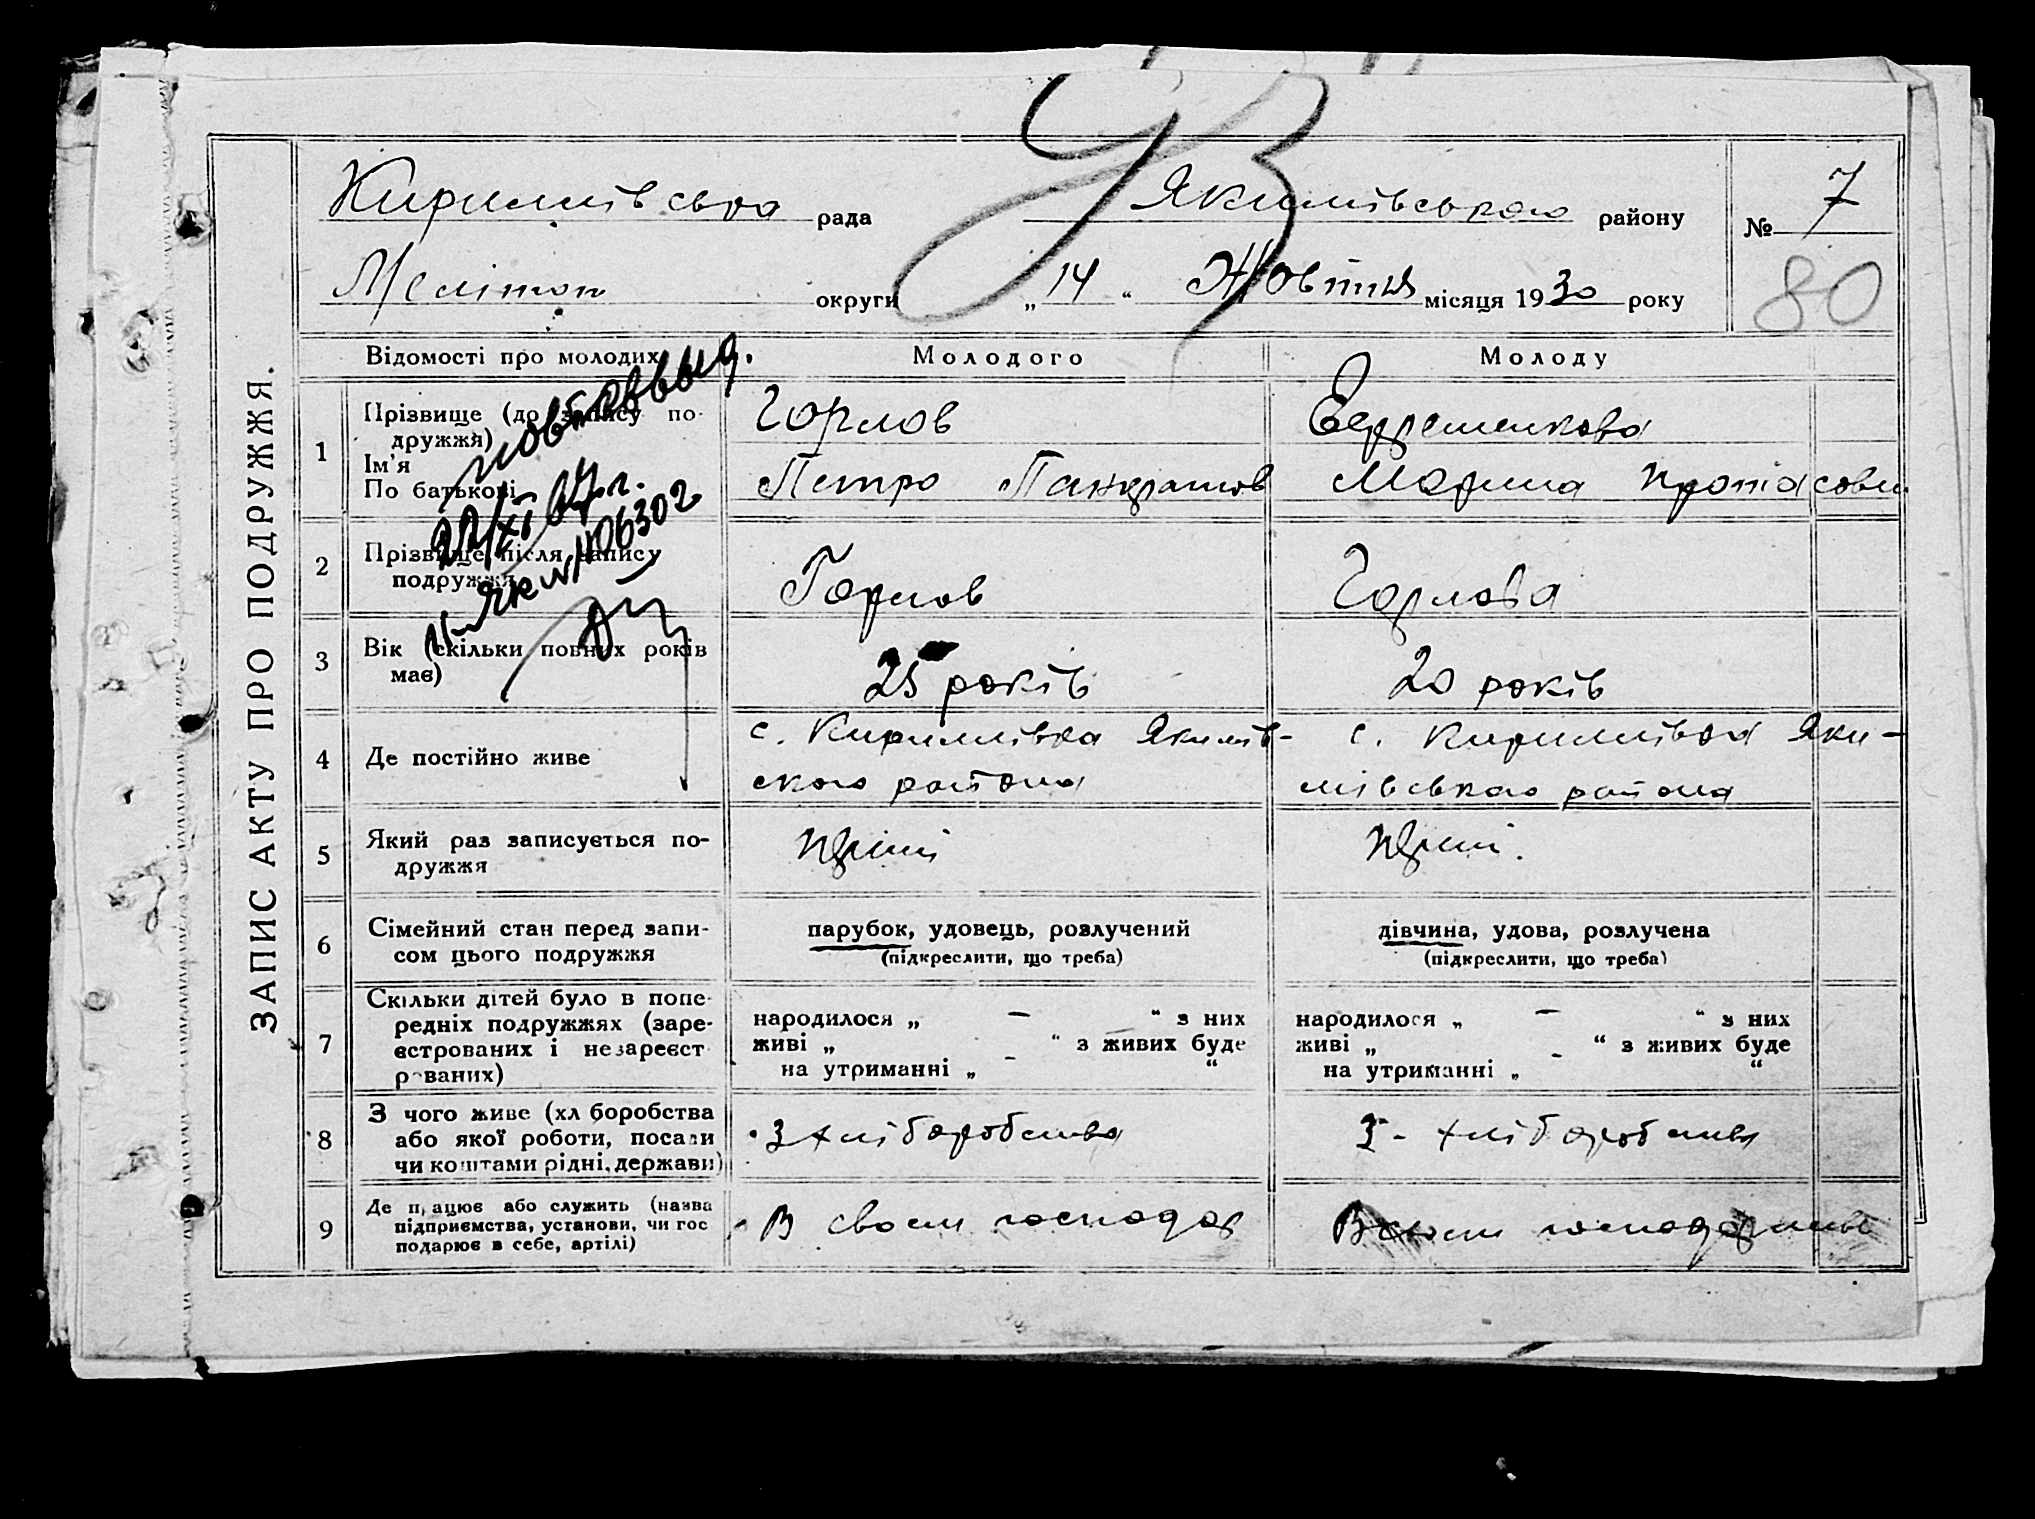 93
Кирилівська рада Якимівського району № 7
Мелітоп округи „14“ Жовтня місяця 1930 року
80
ЗАПИС АКТУ ПРО ПОДРУЖЖЯ.
Відомості про молодих Молодого Молоду
1 Прізвище (до запису по-
дружжя)
Ім'я
По батькові
Горлов Ефременкова
Петро Панкратов Марина Протасовн
повт. выд.
22/XI 67 г.
II-ЯК № 406302
2 Прізвище після запису
подружжя
Горлов Горлова
3 Вік (скільки повних років
має)
25 років 20 років
4 Де постійно живе
с. Кирилівка Якимів-
ского района
с. Кирилівка Яки-
мівського района
5 Який раз записується по-
дружжя
перший перший.
6 Сімейний стан перед запи-
сом цього подружжя
парубок, удовець, розлучений
(підкреслити, що треба)
дівчина, удова, розлучена
(підкреслити, що треба)
7 Скільки дітей було в попе-
редніх подружжях (заре-
єстрованих і незареєст-
рованих)
народилося „ — “ з них
живі „ — “ з живих буде
на утриманні „ - “
народилося „ — “ з них
живі „ - “ з живих буде
на утриманні „ “
8 З чого живе (хліборобства
або якої роботи, посади
чи коштами рідні, держави)
З хліборобства З - хліборобства
9 Де працює або служить (назва
підприємства, установи, чи гос
подарює в себе, артілі)
В своєм господар В своєм господарстві